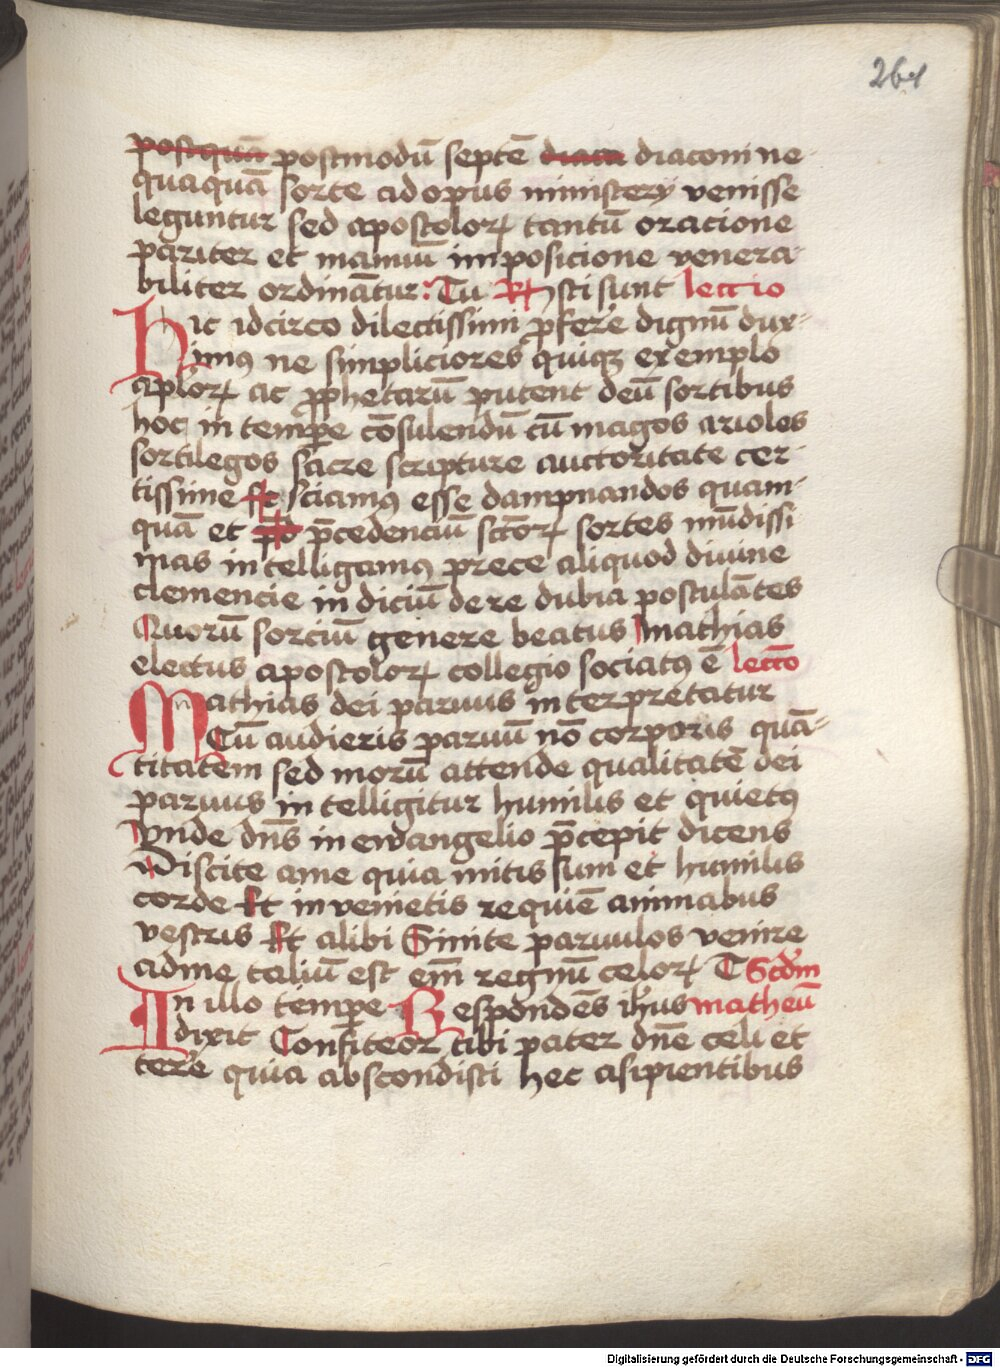 261
postquā postmodū septē diacō diaconi ne-
quaquā sorte ad opus ministery venisse
leguntur sed apostoloꝝ tantū oracione
pariter et manuū imposicione venera-
biliter ordinātur: Tu R Isti sunt lectio
Hic idcirco dilectissimi ꝓferre dignū dux-
imꝰ ne simpliciores quiqꝫ exemplo
aplōꝝ ac ꝓphetarū putent deū sortibus
hoc in tempe cōsulendū cū magos arioles
sortilegos sacre scripture auctoritate cer-
tissime sciamꝰ esse dampnandos quam-
quā et p̄cedenciū sctōꝝ sortes mūdissi
mas intelligamꝰ prece aliquod divine
clemencie indiciū de re dubia postulātes
Quorū sorciū genere beatus mathias
electus apostoloꝝ collegio sociatꝰ ē lectō
Mathias dei paruus interpretatur
Cū audieris paruū nō corporis quā-
titatem sed morū attende qualitatē dei
paruus intelligitur humilis et quietꝰ
vnde dn̄s in ewangelio p̄cepit dicens
Discite ame quia mitis sum et humilis
corde Et invenietis requiē animabus
vestris Et alibi Sinite paruulos venire
adme taliū est em̄ regnū celoꝝ T Scd̄m
In illo tempe Respondēs ihūs matheū
dixit Confiteor tibi pater dn̄e celi et
terre quia abscondisti hec asipientibus
Digitalisierung gefördert durch die Deutsche Forschungsgemeinschaft - DFG